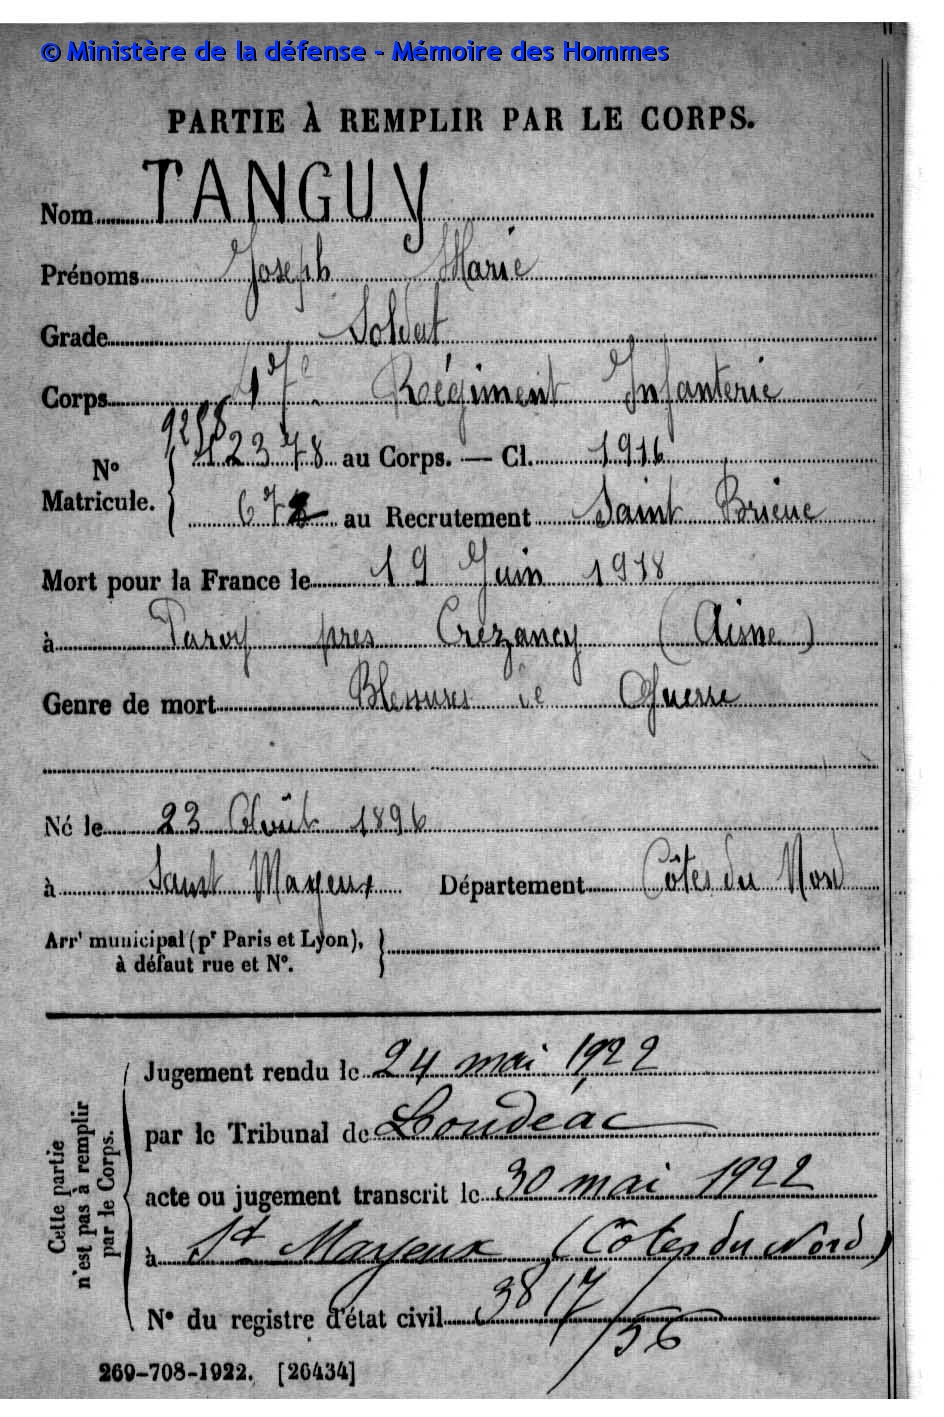 © Ministère de la défense - Mémoire des Hommes
PARTIE À REMPLIR PAR LE CORPS.
Nom TANGUY
Prénoms Joseph Marie
Grade Soldat
Corps 47e Régiment Infanterie
9258
N° Matricule. 12378 au Corps. — Cl. 1916
672 au Recrutement Saint Brieuc
Mort pour la France le 19 Juin 1918
à Paroy près Crézancy (Aisne)
Genre de mort Blessures de Guerre
Né le 23 Août 1896
à Saint Mayeux Département Côtes du Nord
Arrt municipal (pr Paris et Lyon),
à défaut rue et N°.
Cette partie
n'est pas à remplir
par le Corps.
Jugement rendu le 24 mai 1922
par le Tribunal de Loudéac
acte ou jugement transcrit le 30 mai 1922
à St Mayeux (Côtes du Nord)
N° du registre d'état civil 3817/56
269-708-1922. [26434]